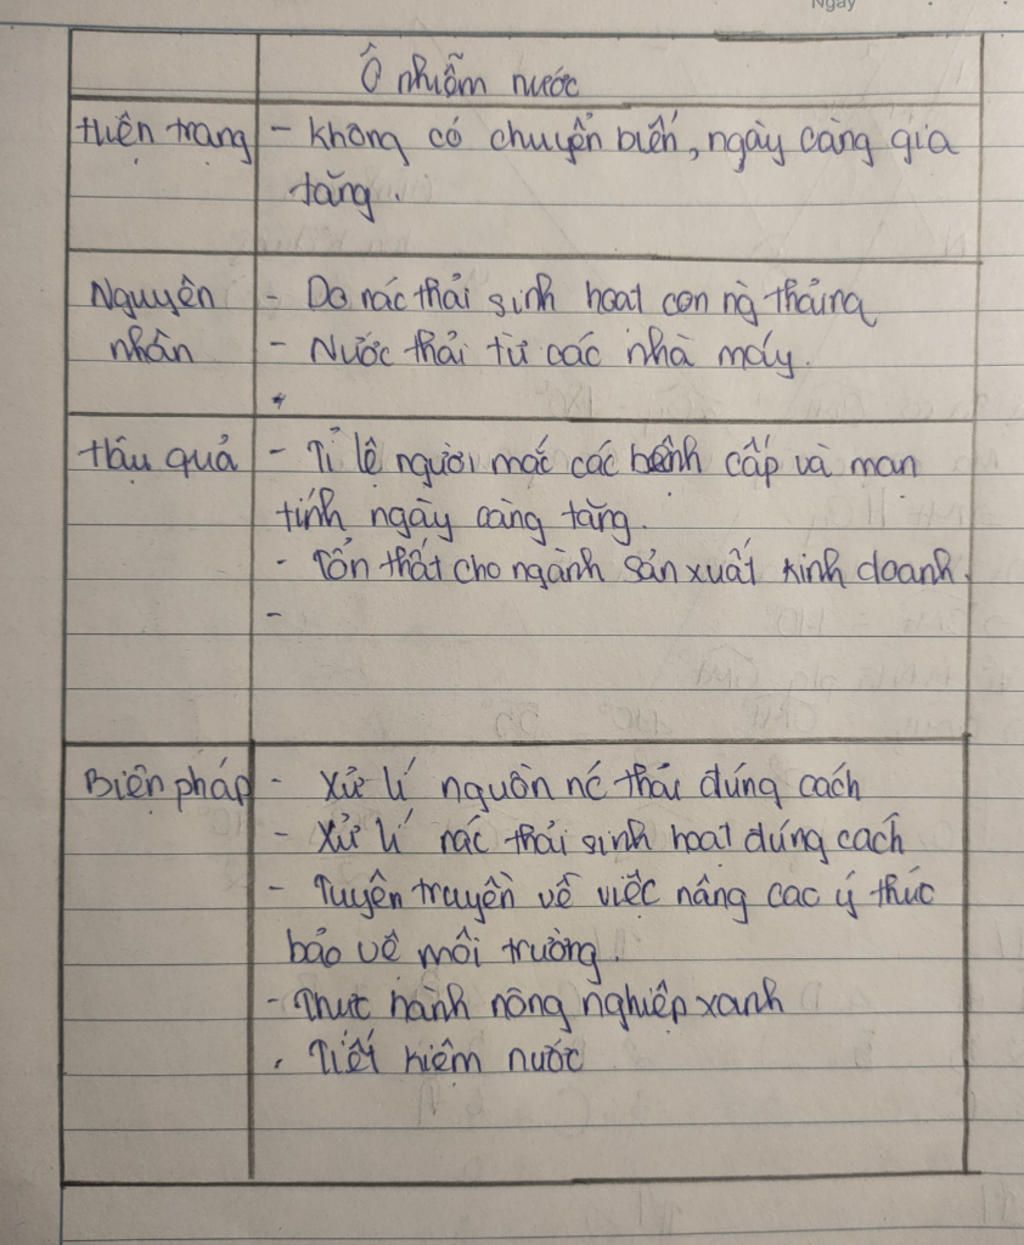 Ngày
Ô nhiễm nước
Hiện trạng
- Không có chuyển biến, ngày càng gia
tăng.
Nguyên
nhân
- Do rác thải sinh hoạt con ng̀ thải ra
- Nước thải từ các nhà máy.
Hậu quả
- Tỉ lệ người mắc các bệnh cấp và mạn
tính ngày càng tăng.
- Tổn thất cho ngành sản xuất kinh doanh.
-
Biện pháp
- Xử lí nguồn nc thải đúng cách
- Xử lí rác thải sinh hoạt đúng cách
- Tuyên truyền về việc nâng cao ý thức
bảo vệ môi trường.
- Thực hành nông nghiệp xanh
. Tiết kiệm nước